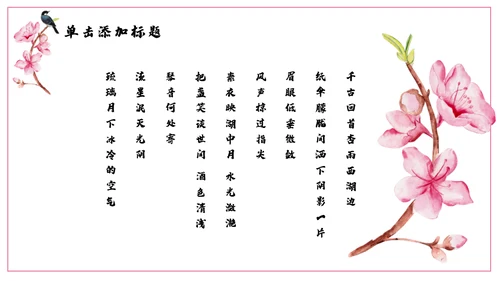 单击添加标题
千古回首杏雨西湖边
纸伞朦胧间洒下阴影一片
眉眼低垂微敛
风声掠过指尖
素衣映湖中月 水光潋滟
把盏笑谈世间 酒色清浅
琴音何处寄
星 光阴
琉璃月下冰冷的空气